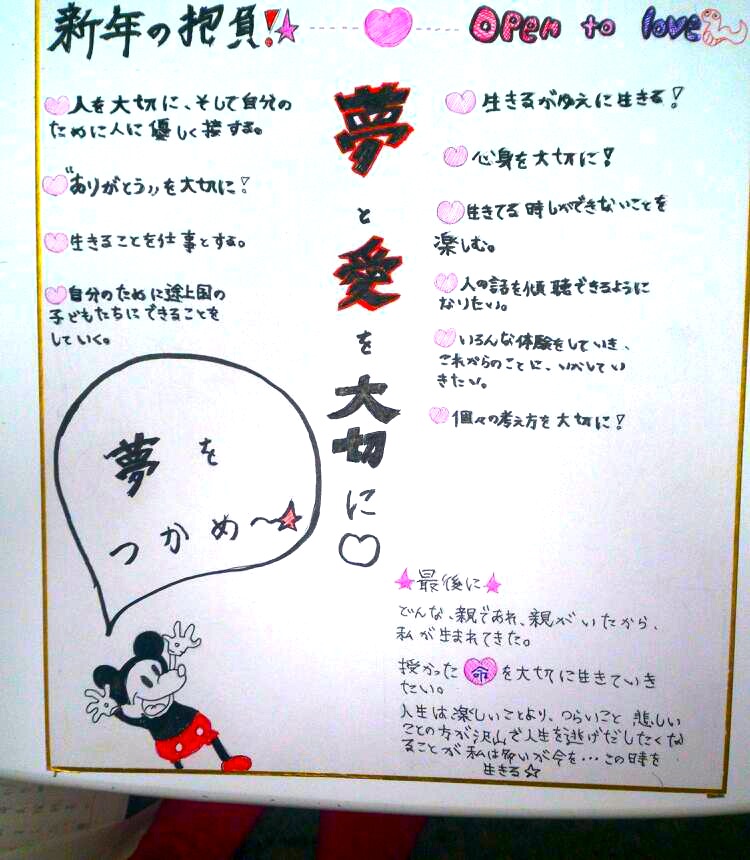 新年の抱負!
Open to love
人を大切に、そして自分の
ために人に優しく接する。
"ありがとう"を大切に!
生きることを仕事とする。
自分のために途上国の
子どもたちにできることを
していく。
夢と愛を大切に
生きるがゆえに生きる!
心身を大切に!
生きてる時しかできないことを
楽しむ。
人の話を傾聴できるように
なりたい。
いろんな体験をしていき、
これからのことに、いかしてい
きたい。
個々の考え方を大切に!
夢を
つかめ〜
最後に
どんな、親であれ、親がいたから、
私が生まれてきた。
授かった命を大切に生きていき
たい。
人生は楽しいことより、つらいこと 悲しい
ことの方が沢山で人生を逃げだしたくな
ることが私は多いが今を…この時を
生きる☆